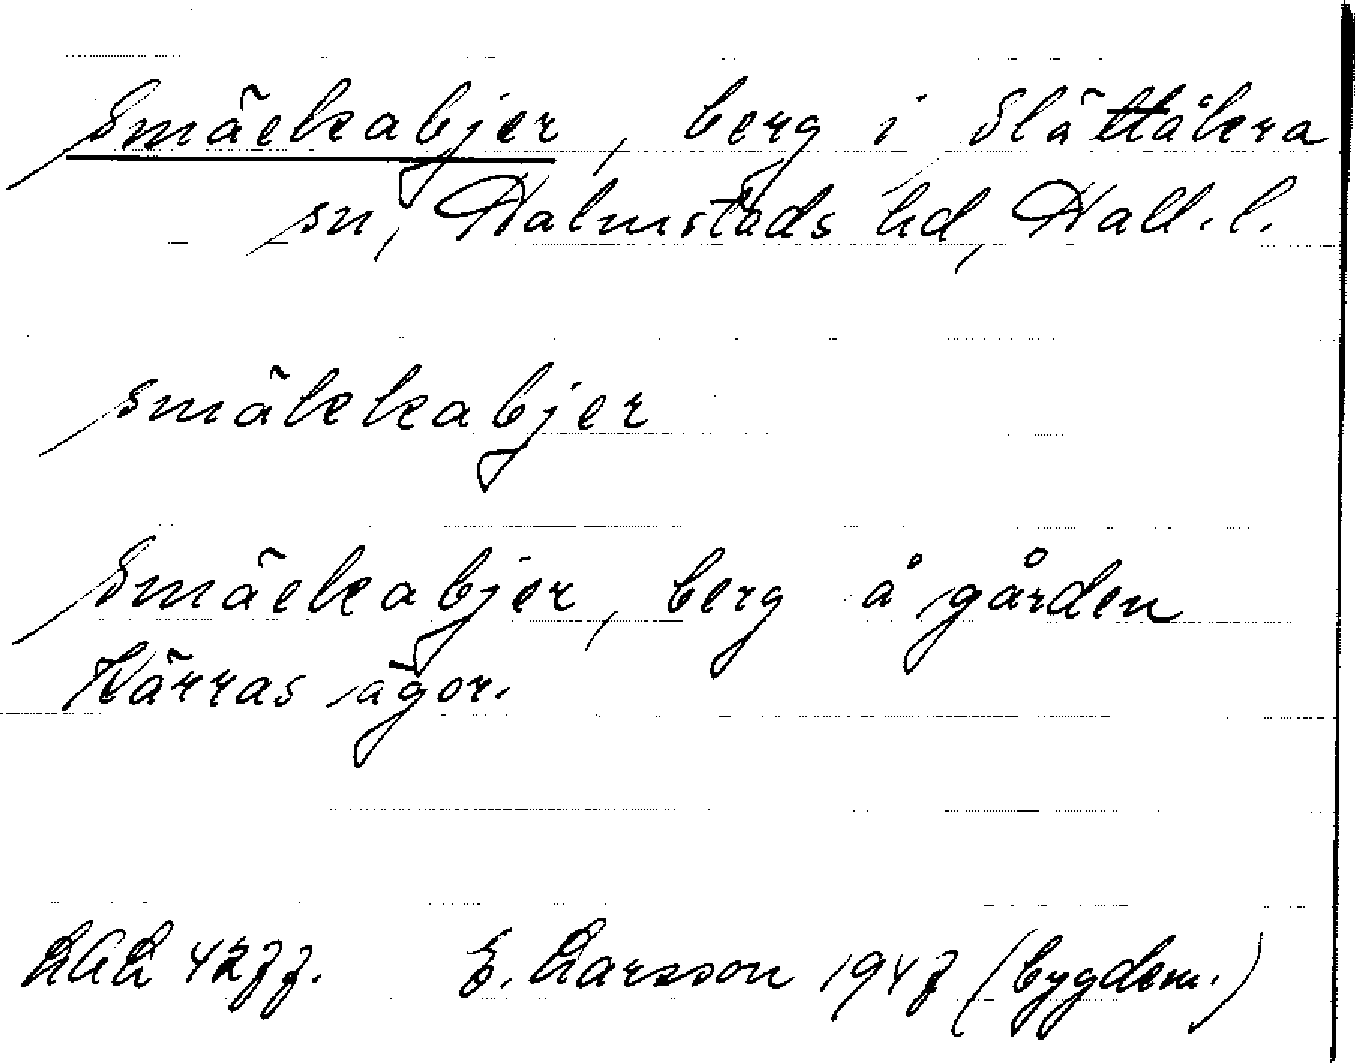 Smäckabjer, berg i Slättåkra
sn, Halmstads hd, Hall. l.
smäkkabjer
Smäckabjer, berg å gården
Kärras ägor.
LAL 4277. E. Larsson 1947 (bygdem.)